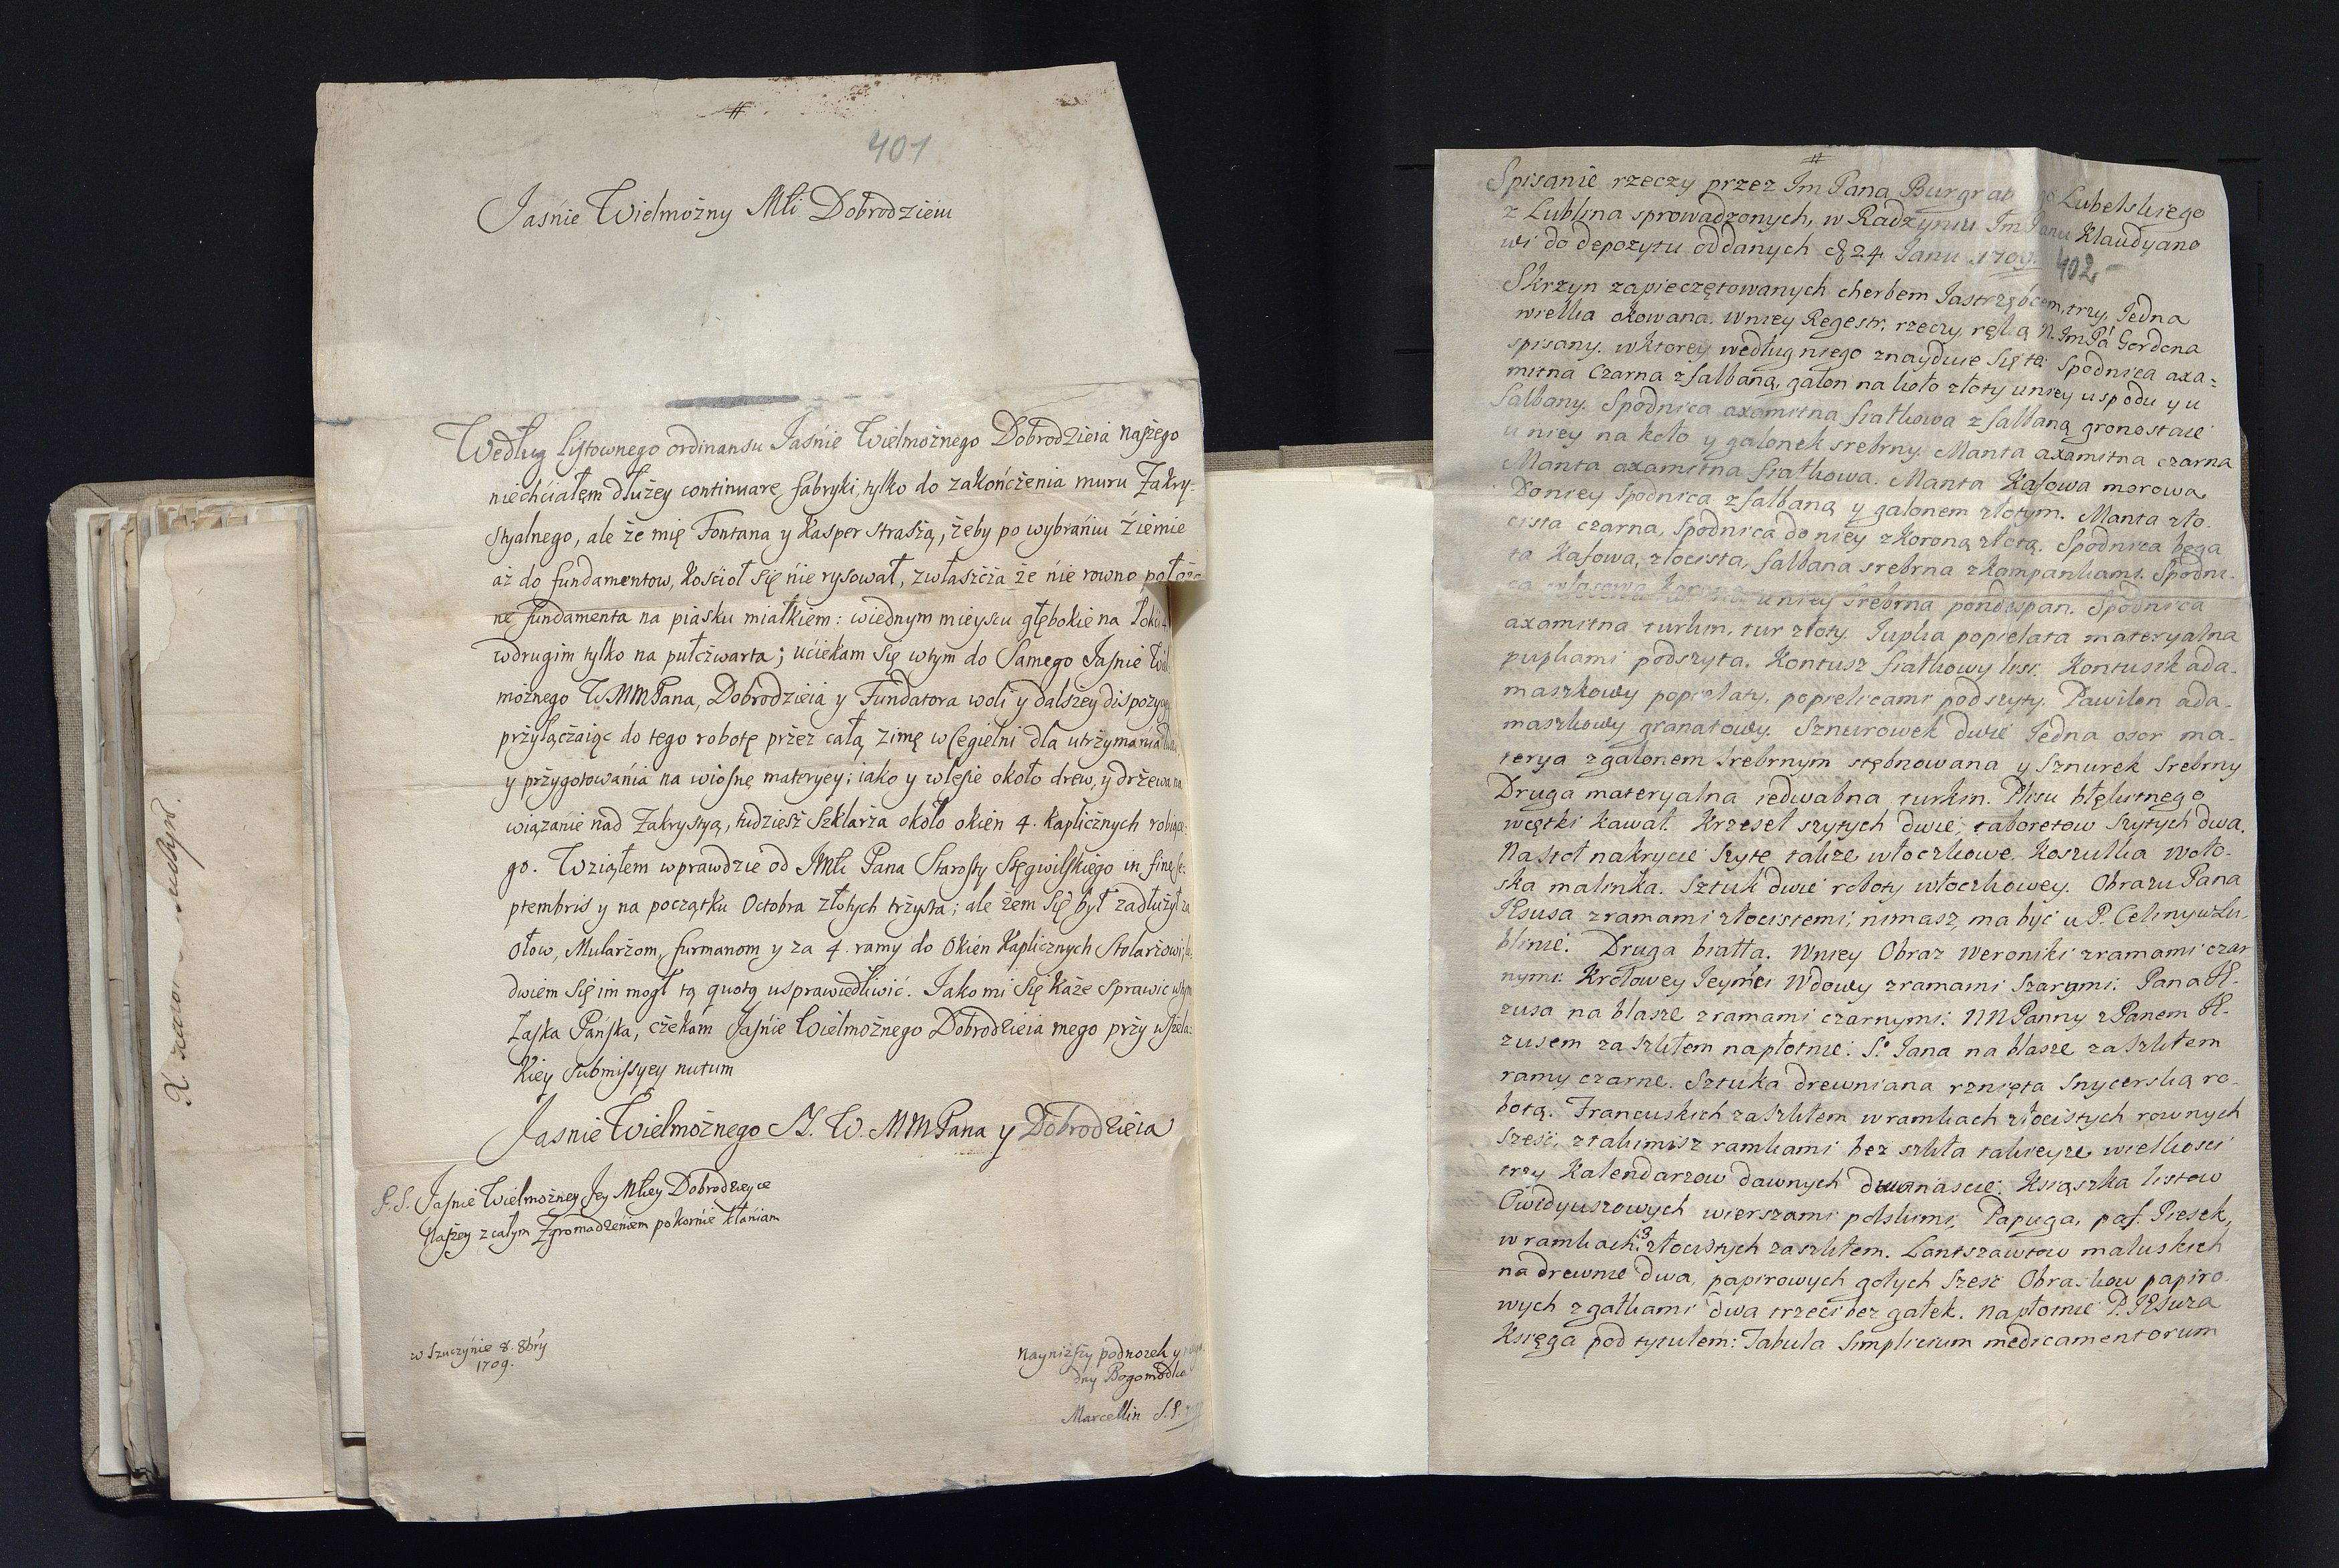 #
401
Jaśnie Wielmożny Młi Dobrodzieiu
Według listownego ordinansu Jaśnie Wielmożnego Dobrodzieia naszego
niechciałem dłużey continuare fabryki, tylko do zakończenia muru Zakry-
styalnego, ale że mię Fontana y Kasper straszą, żeby po wybrániu źiemie
aż do fundamentow, Kościoł się nie rysował, zwłaszcża że nie rowno położo
ne fundamenta na piasku miałkiem: wiednym mieyscu głębokie na Łokci 4
wdrugim tylko na pułczwarta; ućiekam się wtym do Samego Jaśnie Wiel
możnego WMMPana, Dobrodzieia y Fundatora woli y dalszey dispozycy
przyłączaiąc do tego robotę przez całą zimę w Cegielni dla utrżymania
y przygotowánia na wiosnę materyey; iako y wlesie około drew, y drżewa na
wiązanie nad Zakrystyą, tudziesz Szklarża około okien 4. Kaplicżnych robiące-
go. Wziąłem wprawdzie od JMłi Pana Starosty Stęgwilskiego in fine Se-
ptembris y na początku Octobra złotych trżysta; ale żem się był zadłużył za
Ołow, Mularżom, furmanom y za 4. ramy do Okien Kaplicznych Stolarżowi; le-
dwiem się im mogł tą quotą usprawiedliwić. Jako mi się każe sprawic wtym
Łaska Pańska, cżekam Jaśnie Wielmożnego Dobrodzieia mego przy wszela-
kiey submissyey nutum
Jaśnie Wielmożnego N. W. MMPana y Dobrodzieia
P.S. Jaśnie Wielmożney Jey Młiey Dobrodzieyce
Naszey z całym Zgromadzeńiem pokornie kłaniam
w Szuczynie 8. 8bry
1709.
Nayniższy podnożek y
dny Bogomodlca
Marcellin S.P.
#
Spisanie rzeczy przez Im Pana Burgrab go Lubelskiego
z Lublina sprowadzonych, w Radzyniu Im Panu Klaudyano
wi do depozytu oddanych 24 Janu 1709.
402
Skrzyn zapieczętowanych cherbem Jastrzębcem, trzy, Jedna
wielka okowana. wniey Regestr. rzeczy, ręką N. Im Pa Gordona
spisany. wktorey według niego znayduie się te: Spodnica axa-
mitna Czarna z falbaną, galon na koło złoty uniey uspodu y u
falbany. Spodnica axamitna fiałkowa z falbaną gronostaie
u niey na koło y galonek srebrny. Manta axamitna czarna
Manta axamitna fiałkowa. Manta Kafowa morowa,
Doniey Spodnica z falbaną y galonem złotym. Manta zło-
cista czarna, Spodnica do niey z Koroną złotą. Spodnica boga
ta Kafowa, złocista, falbana srebrna z kampankami. Spodni-
ca uniey srebrna pondespan. Spodnica
axamitna turkin. tur złoty. Jupka popielata materyalna
pupkami podszyta. Kontusz fiałkowy lisi. Kontusik ada-
maszkowy popielaty, popielicami podszyty. Pawilon ada-
maszkowy granatowy. Sznurowek dwie Jedna osor ma-
terya z galonem srebrnym stębnowana y Sznurek srebrny
Druga materyalna iedwabna turkin. Plisu błękitnego
wąski kawał. Krzeseł szytych dwie, taboretow szytych dwa.
Na stoł nakrycie szyte także włoczkowe. Koszulka woło-
ska malinka. Sztuk dwie roboty włoczkowey. Obrazu Pana
JEsusa z ramami złocistemi, nimasz, ma być u P. Celiny w Lu-
blinie. Druga biała. Wniey Obraz Weroniki z ramami czar
nymi: Krolowey Jeymći Wdowy z ramami szarymi: Pana JE-
zusa na blasze z ramami czarnymi: NN Panny z Panem JE-
zusem za szkłem na płotnie: S. Jana na blasze za szkłem
ramy czarne. Sztuka drewniana rznięta snycerską ro-
botą. Francuskich za szkłem w ramkach złocistych rownych
sześć, z takimisz ramkami bez szkła takieyze wielkości
trzy Kalendarzow dawnych dwanascie. Ksiąszka listow
Owidyuszowych wierszami polskimi, Papuga, paf. Piesek,
w ramkach 3 złocistych za szkłem. Lantszawtow maluskich
na drewnie dwa, papirowych gołych sześć Obraskow papiro-
wych z gałkami dwa trzeci bez gałek. na płotnie P. JEsuza
Księga pod tytułem: Tabula Simplicium medicamentorum